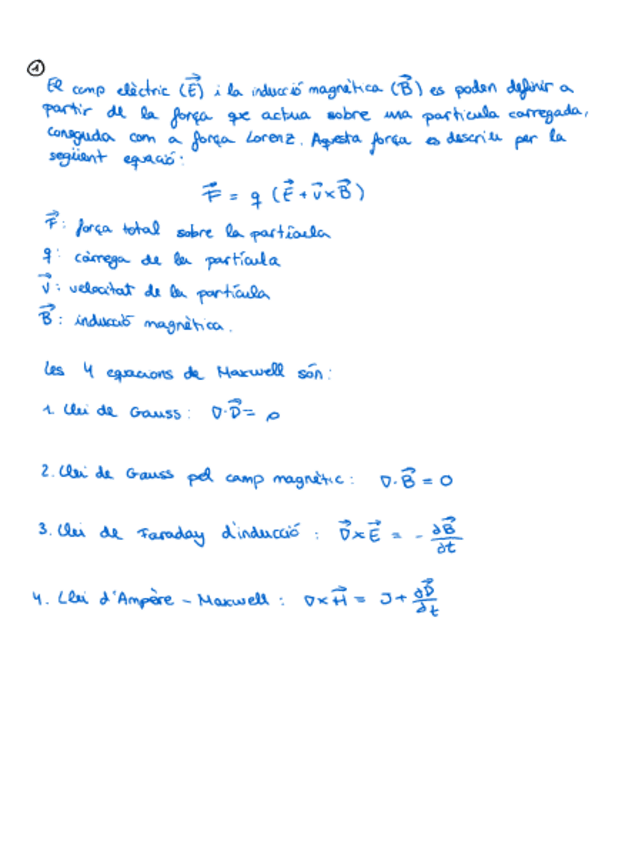 ①
El camp elèctric (E⃗) i la inducció magnètica (B⃗) es poden definir a
partir de la força que actua sobre una partícula carregada,
coneguda com a força Lorenz. Aquesta força es descriu per la
següent equació:
F⃗ = q (E⃗ + v⃗ × B⃗)
F⃗: força total sobre la partícula
q: càrrega de la partícula
v⃗: velocitat de la partícula
B⃗: inducció magnètica.
Les 4 equacions de Maxwell són:
1. Llei de Gauss: ∇·D⃗ = ρ
2. Llei de Gauss pel camp magnètic: ∇·B⃗ = 0
3. Llei de Faraday d'inducció: ∇⃗×E⃗ = - ∂B⃗/∂t
4. Llei d'Ampère - Maxwell: ∇×H⃗ = J + ∂D⃗/∂t